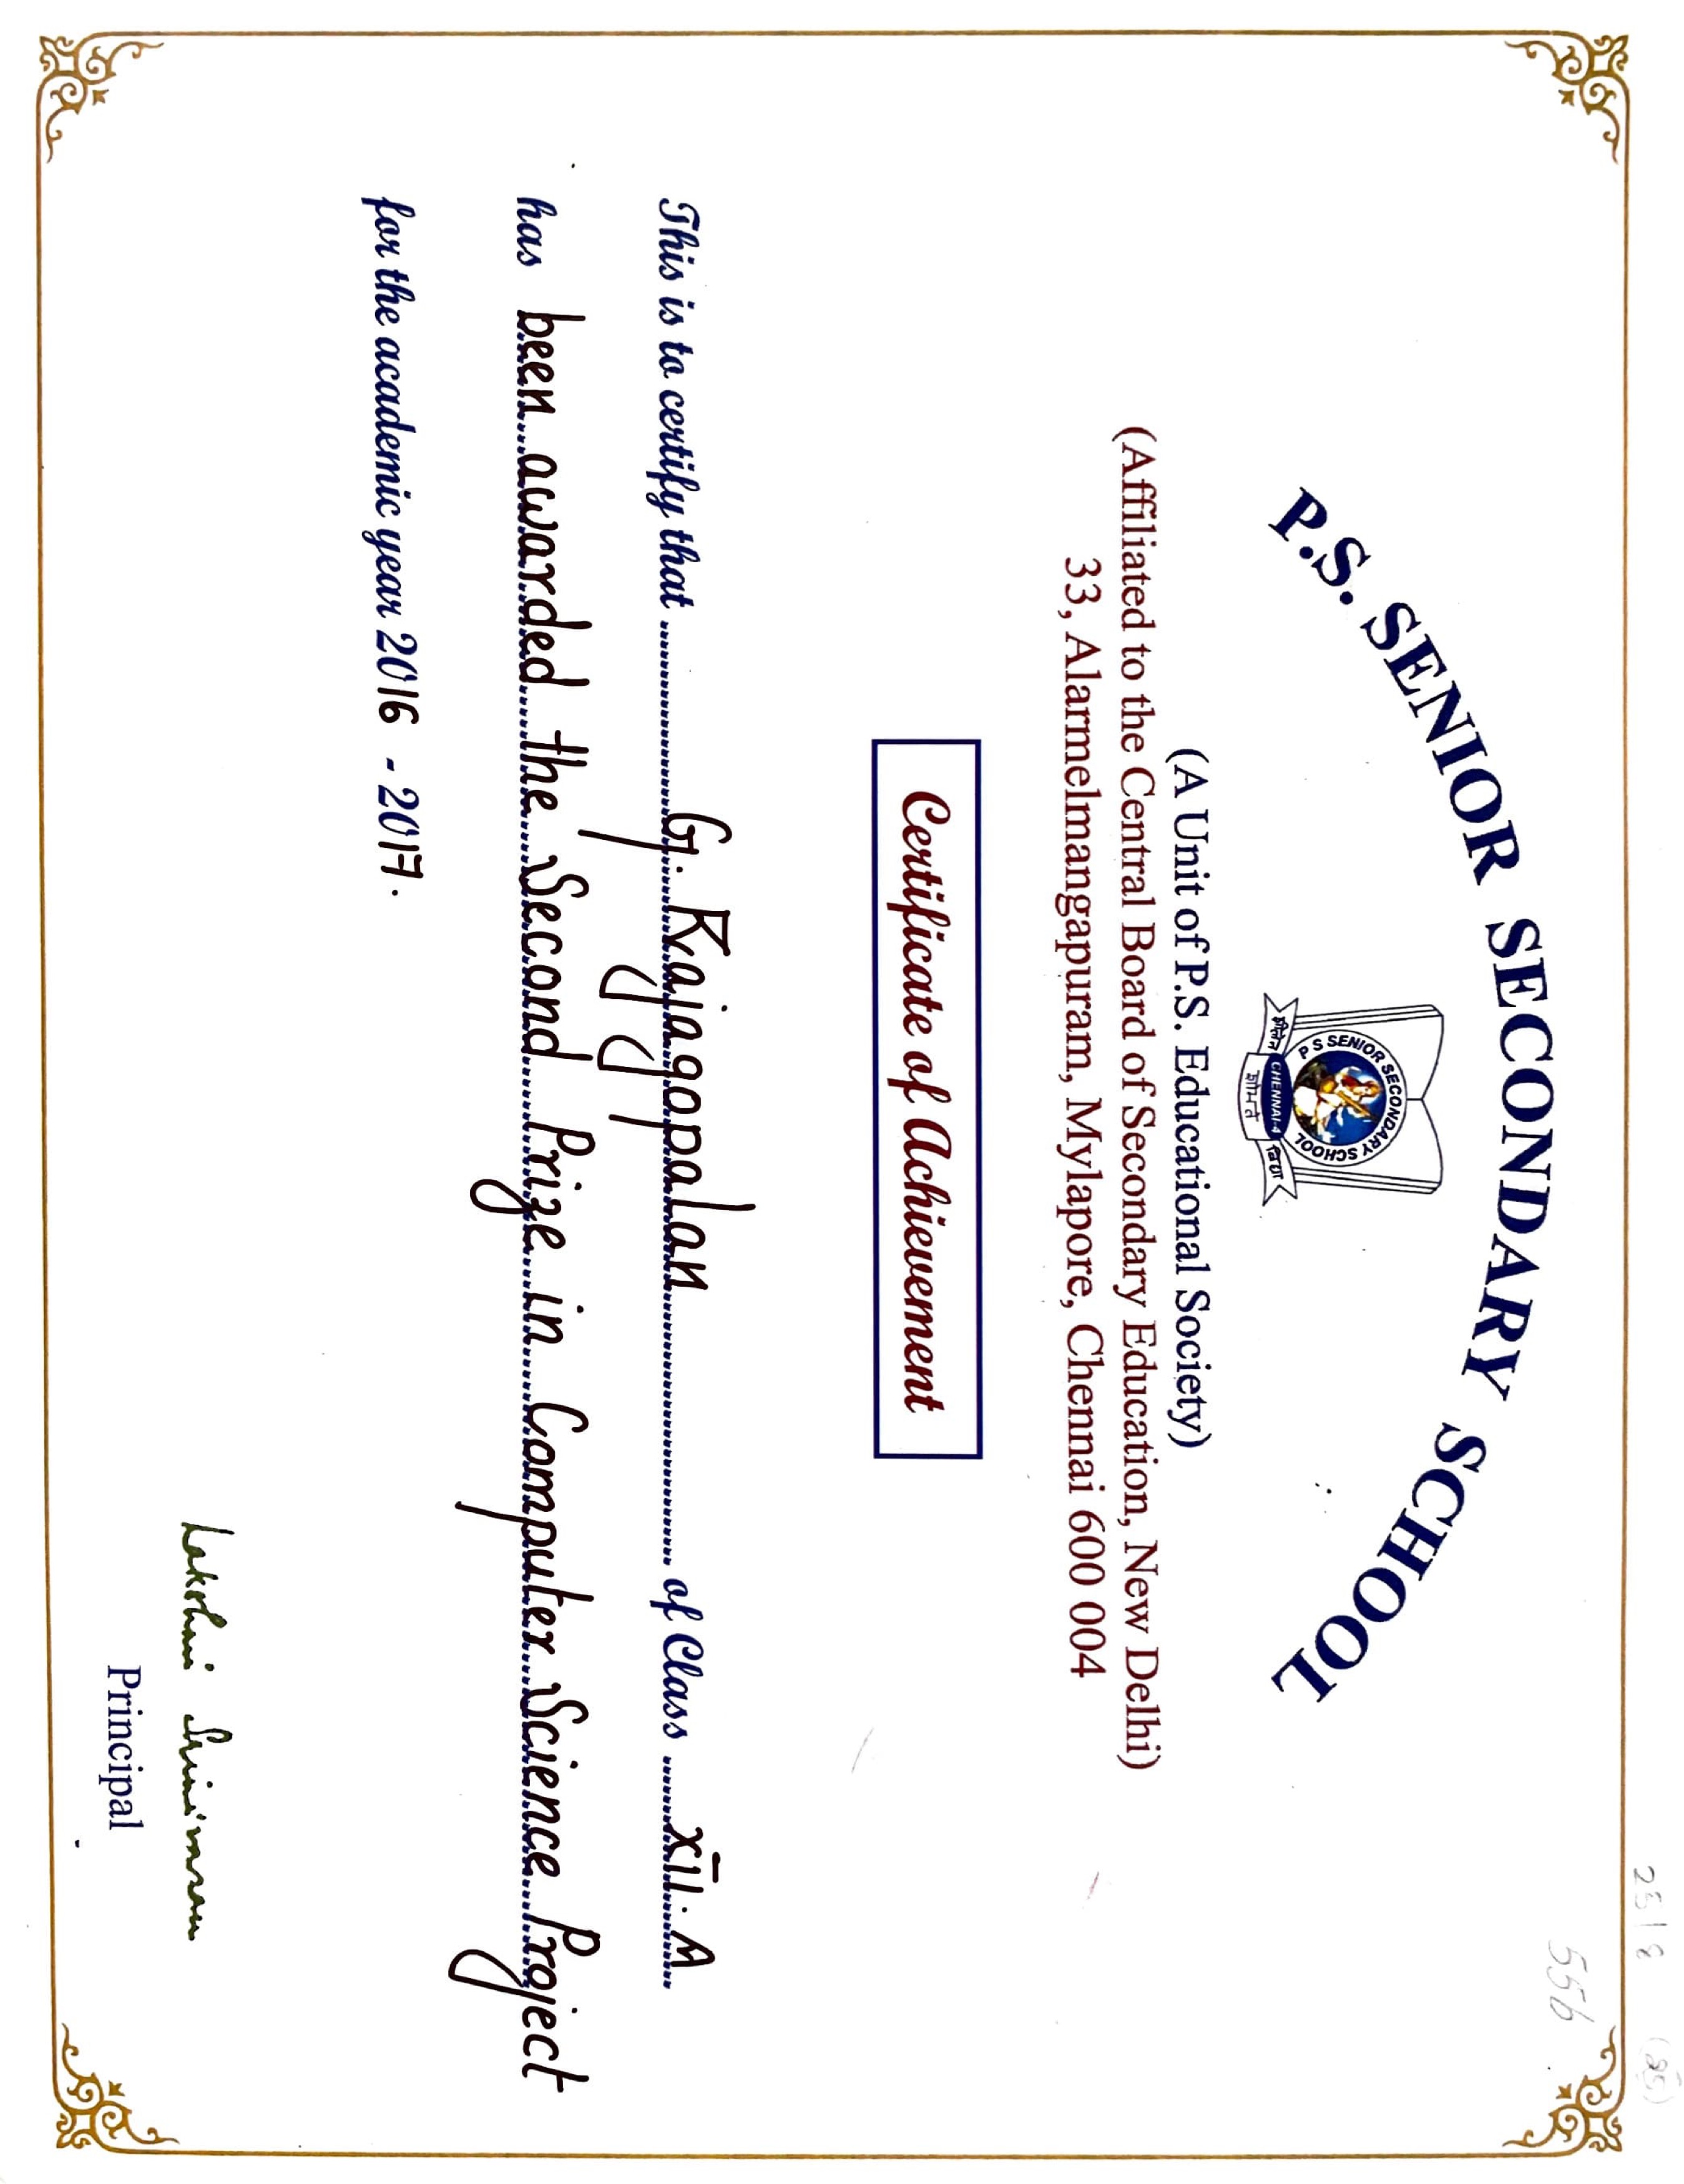 25/8 (85)
556
P.S. SENIOR SECONDARY SCHOOL
P S SENIOR SECONDARY SCHOOL
शीलेन CHENNAI-4 विद्या
शोभते
(A Unit of P.S. Educational Society)
(Affiliated to the Central Board of Secondary Education, New Delhi)
33, Alarmelmangapuram, Mylapore, Chennai 600 004
Certificate of Achievement
This is to certify that G. Rajagopalan of Class XII. A
has been awarded the Second Prize in Computer Science Project
for the academic year 2016 - 2017.
Lakshmi Srinivasan
Principal